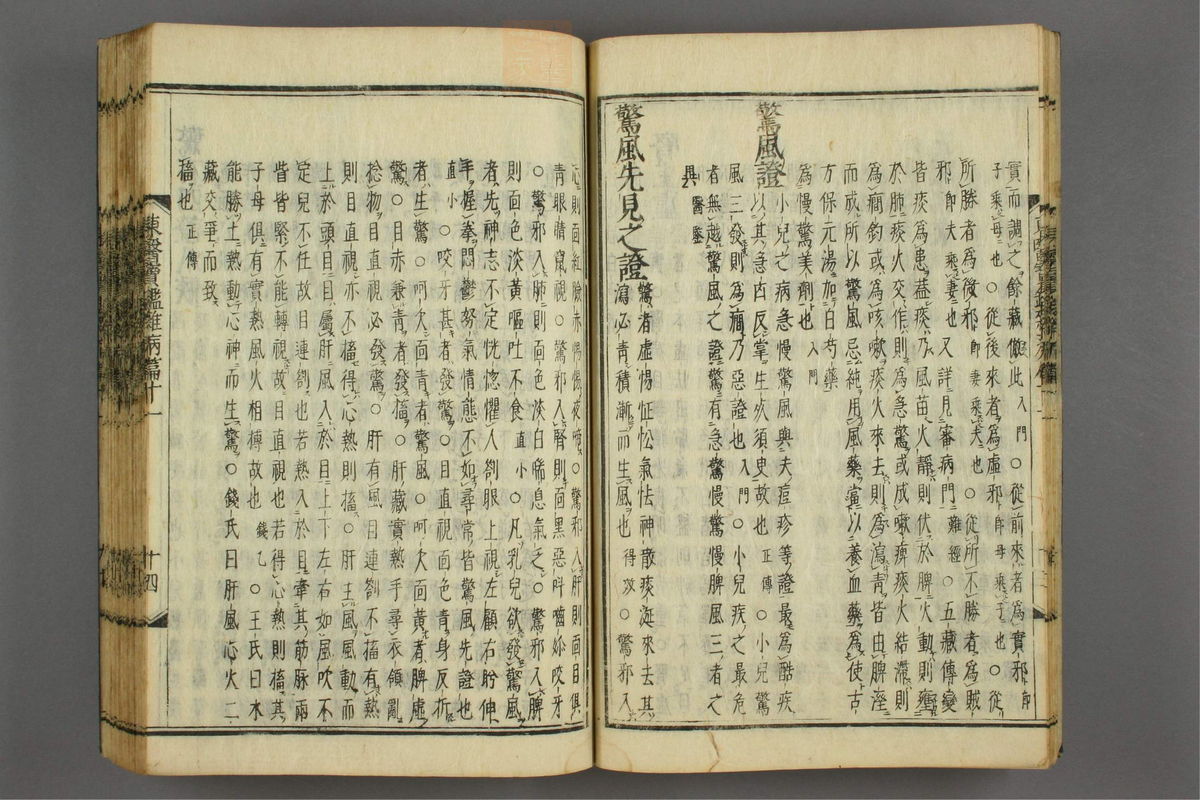 實而調之餘藏倣此入門○從前來者為實邪即
子乘母也○從後來者為虛邪即母乘子也○從
所勝者為微邪即妻乘夫也○從所不勝者為賊
邪即夫乘妻也又詳見審病門難經○五藏傳變
皆痰為患蓋痰乃風苗火靜則伏於脾火動則壅
於肺痰火交作則為急驚或成嗽痹痰火結滯則
為癎釣或為咳嗽痰火來去則為瀉青皆由脾溼
而成所以驚風忌純用風藥當以養血藥為使古
方保元湯加白芍藥
為慢驚美劑也入門
驚風證
小兒之病急慢驚風與夫痘疹等證最為酷疾
以其急古反掌生死須臾故也正傳○小兒驚
風三發則為癎乃惡證也入門○小兒疾之最危
者無越驚風之證驚有急驚慢驚慢脾風三者之
異醫鑒
驚風先見之證
驚者虛惕怔忪氣怯神散痰涎來去其
瀉必青積漸而生風也得效○驚邪入
心則面紅臉赤惕惕夜啼○驚邪入肝則面目俱
青眼睛竄視○驚邪入腎則面黑惡叫嚙妳咬牙
○驚邪入肺則面色淡白喘息氣乏○驚邪入脾
則面色淡黃嘔吐不食直小○凡乳兒欲發驚風
者先神志不定恍惚懼人劄眼上視左顧右盻伸
手握拳悶鬱努氣情態不如尋常皆驚風先證也
直小○咬牙甚者發驚○目直視面色青身反折
者生驚○呵欠面青者驚風○呵欠面黃者脾虛
驚○目赤兼青者發搐○肝藏實熱手尋衣領亂
捻物目直視必發驚○肝有風目連劄不搐有熱
則目直視亦不搐得心熱則搐○肝主風風動而
上於頭目目屬肝風入於目上下左右如風吹不
定兒不任故目連劄也若熱入於目牽其筋脉兩
眥皆緊不能轉視故目直視也若得心熱則搐其
子母俱有實熱風火相搏故也錢乙○王氏曰木
能勝土熱動心神而生驚○錢氏曰肝風心火二
藏交爭而致
搐也正傳
東醫寶鑑雜病篇十一
十四